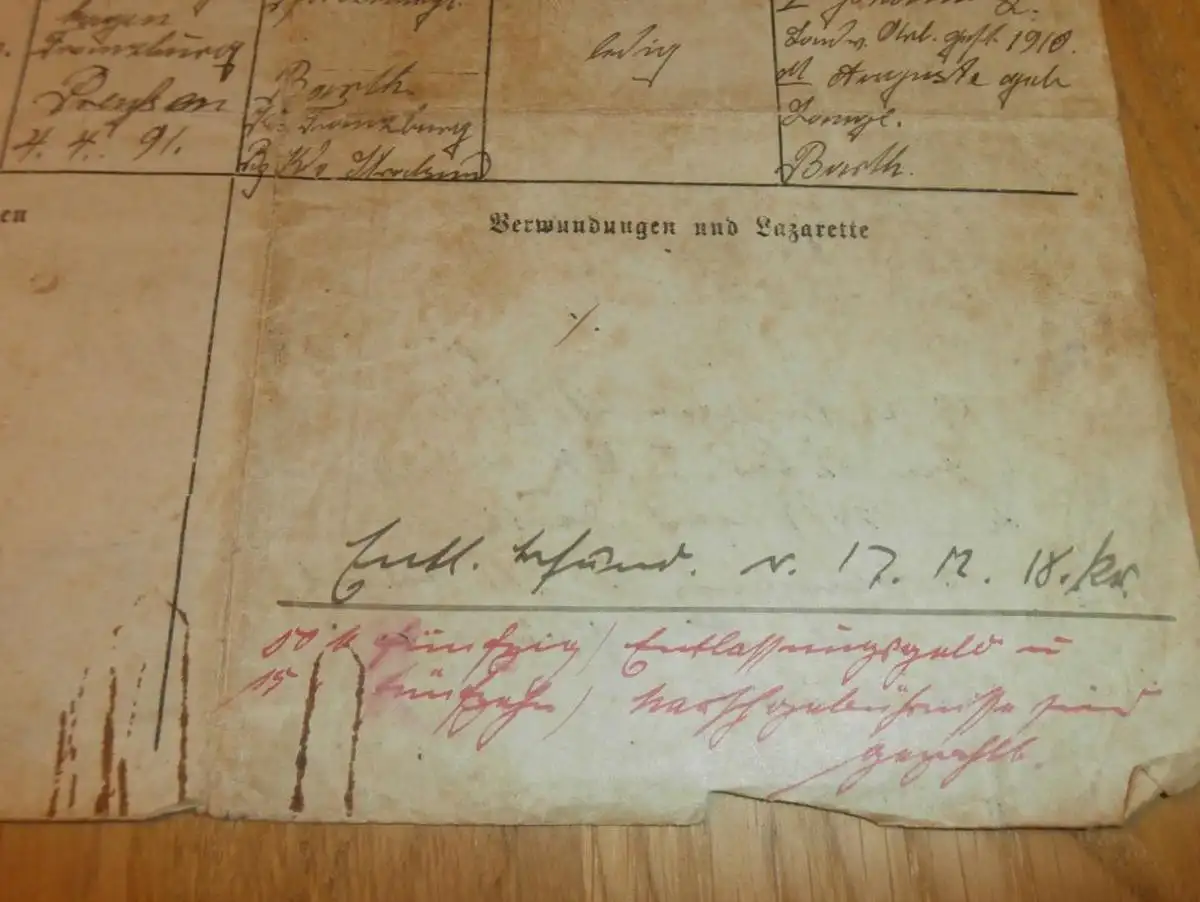 hagen
Franzburg
Preußen
4. 4. 91.
Barth
Kr. Franzburg
Bz. K. Stralsund
ledig
V Johann L.
Landw. Arb. gest. 1910.
M Auguste geb
Barth.
en
Verwundungen und Lazarette
./.
Entl. befund. v. 17. 12. 18. Kr.
50 M fünfzig) Entlassungsgeld u
15 " fünfzehn) Marschgebührnisse sind
gezahlt.